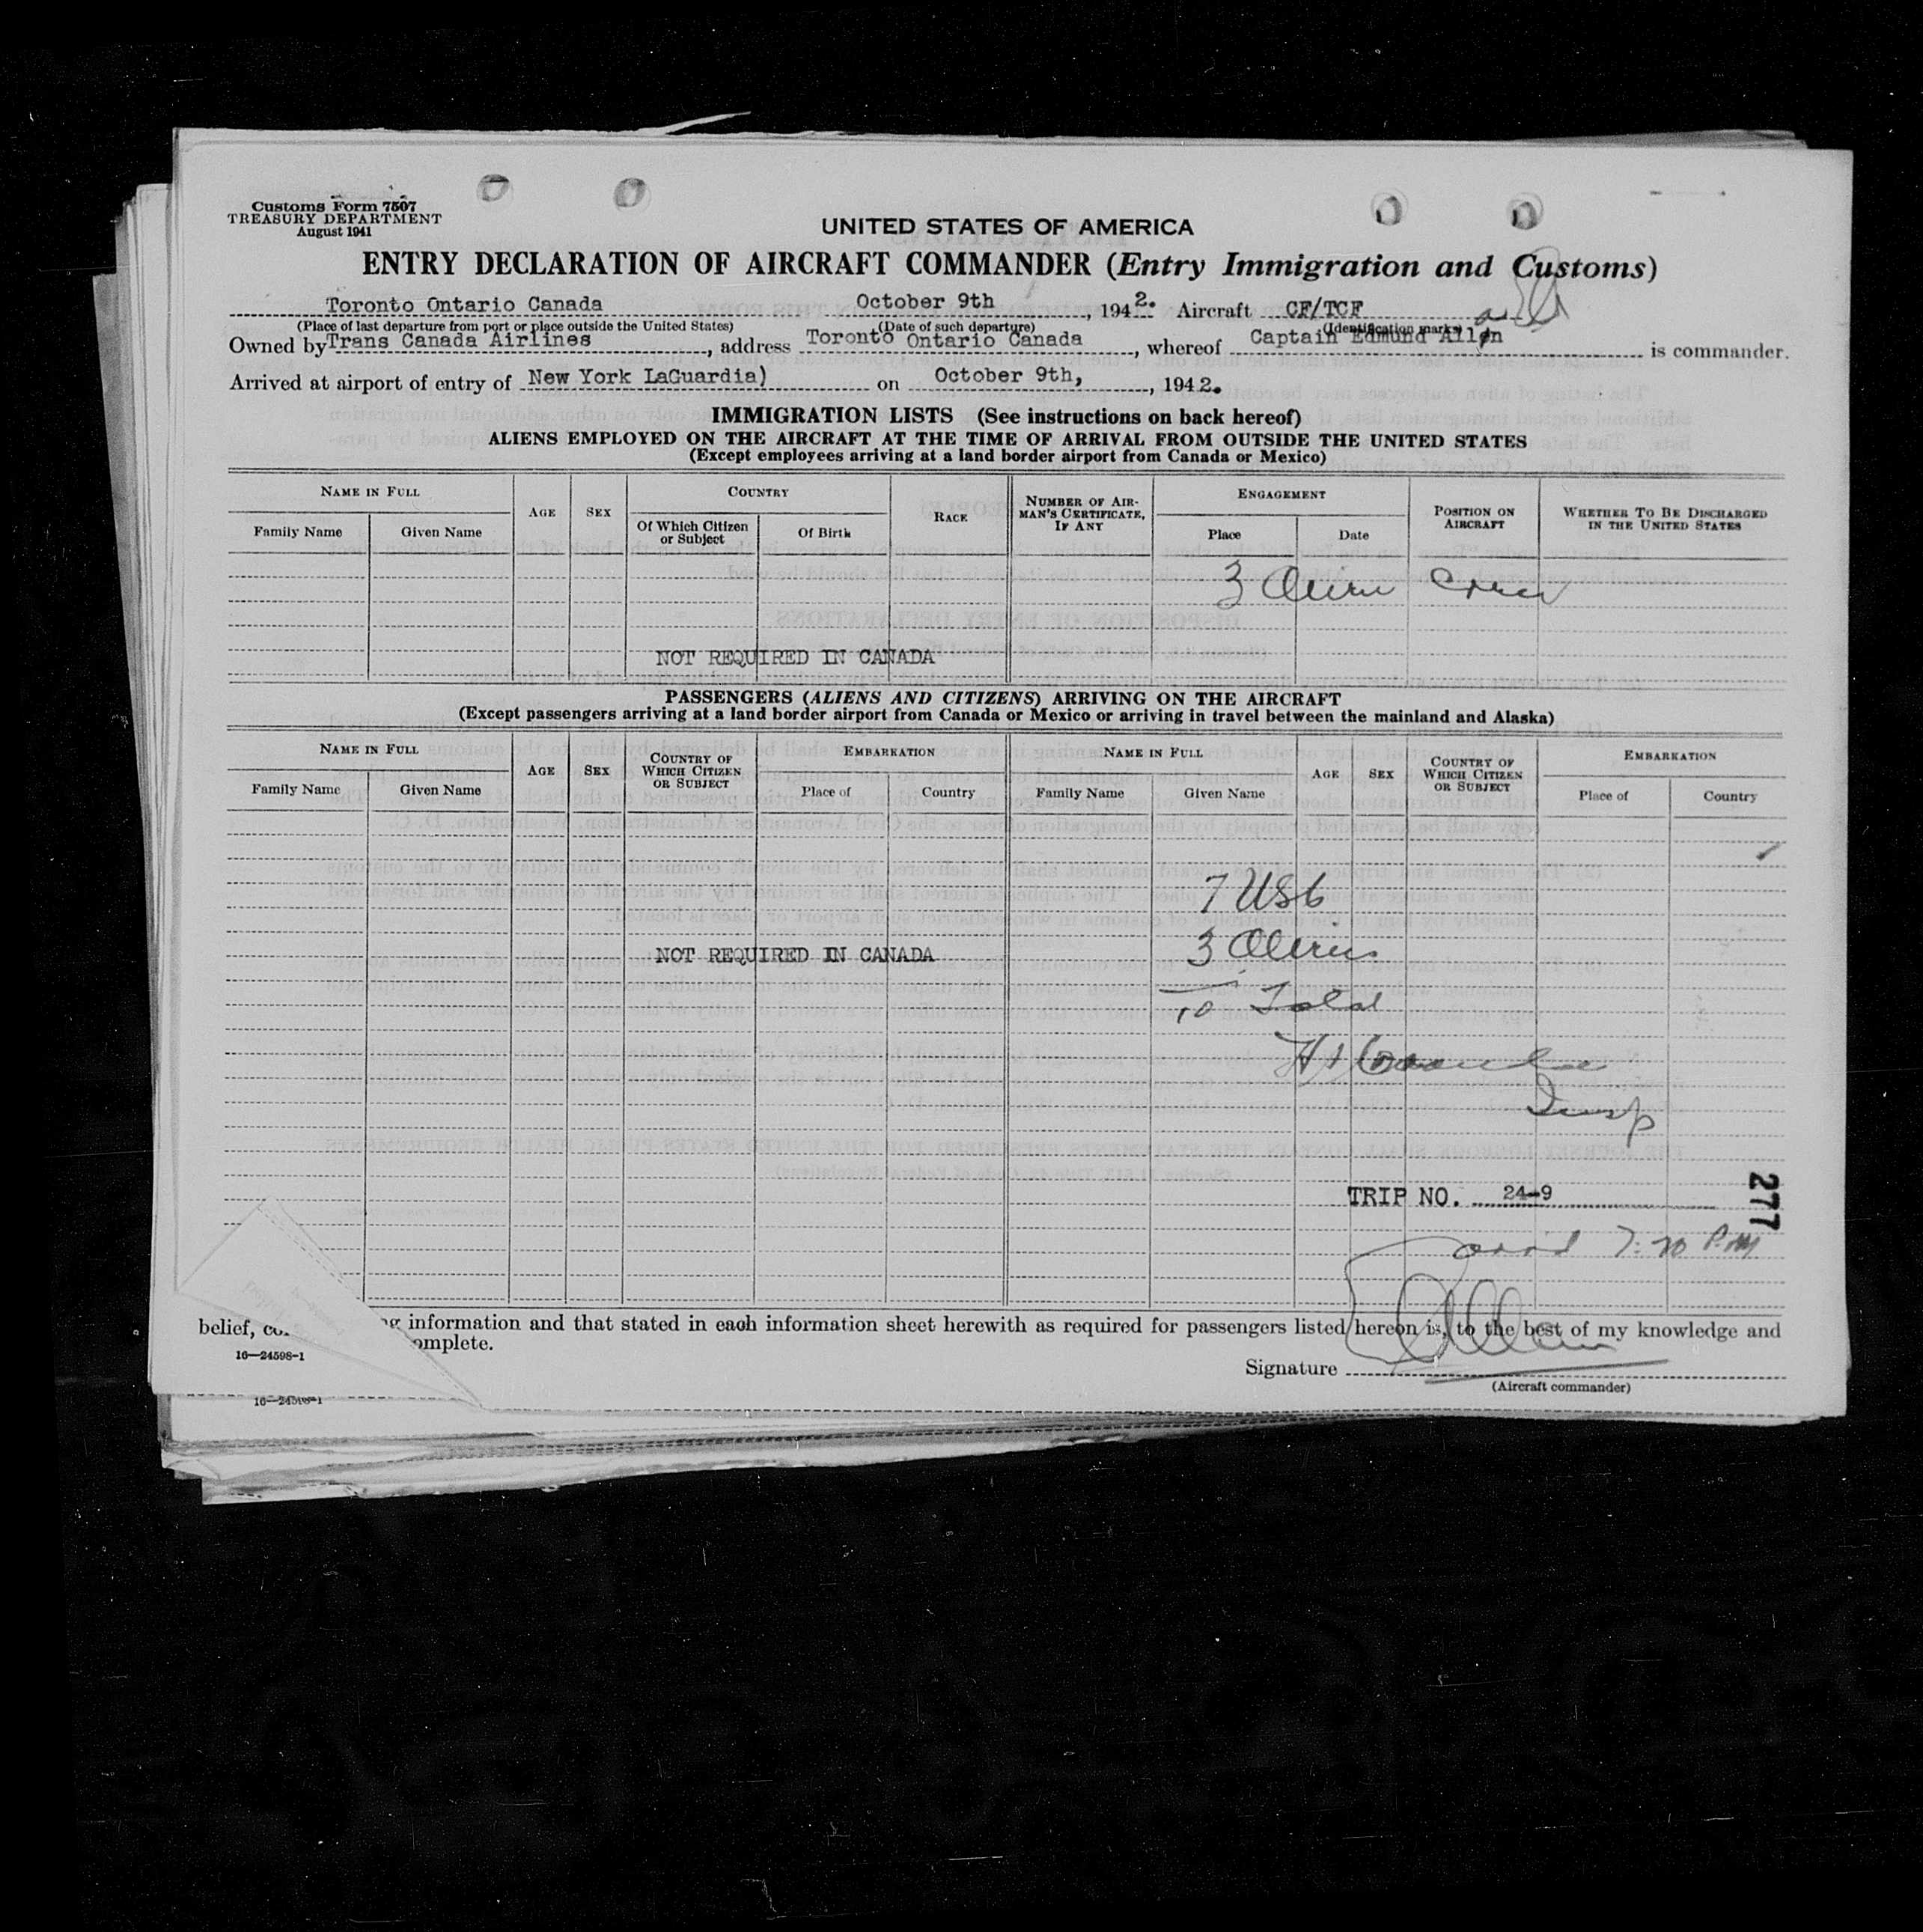 Customs Form 7507
TREASURY DEPARTMENT
August 1941
UNITED STATES OF AMERICA
ENTRY DECLARATION OF AIRCRAFT COMMANDER (Entry Immigration and Customs)
Toronto Ontario Canada October 9th , 1942. Aircraft CF/TCF
(Place of last departure from port or place outside the United States) (Date of such departure) (Identification marks)
Owned by Trans Canada Airlines , address Toronto Ontario Canada , whereof Captain Edmund Allan is commander.
Arrived at airport of entry of New York LaGuardia) on October 9th, , 1942.
IMMIGRATION LISTS (See instructions on back hereof)
ALIENS EMPLOYED ON THE AIRCRAFT AT THE TIME OF ARRIVAL FROM OUTSIDE THE UNITED STATES
(Except employees arriving at a land border airport from Canada or Mexico)
NAME IN FULL AGE SEX COUNTRY RACE NUMBER OF AIRMAN'S CERTIFICATE, IF ANY ENGAGEMENT POSITION ON AIRCRAFT WHETHER TO BE DISCHARGED IN THE UNITED STATES
Family Name Given Name Of Which Citizen or Subject Of Birth Place Date
3 Alien Crew
NOT REQUIRED IN CANADA
PASSENGERS (ALIENS AND CITIZENS) ARRIVING ON THE AIRCRAFT
(Except passengers arriving at a land border airport from Canada or Mexico or arriving in travel between the mainland and Alaska)
NAME IN FULL AGE SEX COUNTRY OF WHICH CITIZEN OR SUBJECT EMBARKATION NAME IN FULL AGE SEX COUNTRY OF WHICH CITIZEN OR SUBJECT EMBARKATION
Family Name Given Name Place of Country Family Name Given Name Place of Country
7 USC
3 Aliens
NOT REQUIRED IN CANADA
10 Total
Insp
TRIP NO. 24-9
277
7:20 P.M
information and that stated in each information sheet herewith as required for passengers listed hereon is, to the best of my knowledge and
belief, omplete.
16—24598-1
Signature Allan
(Aircraft commander)
16—24598-1